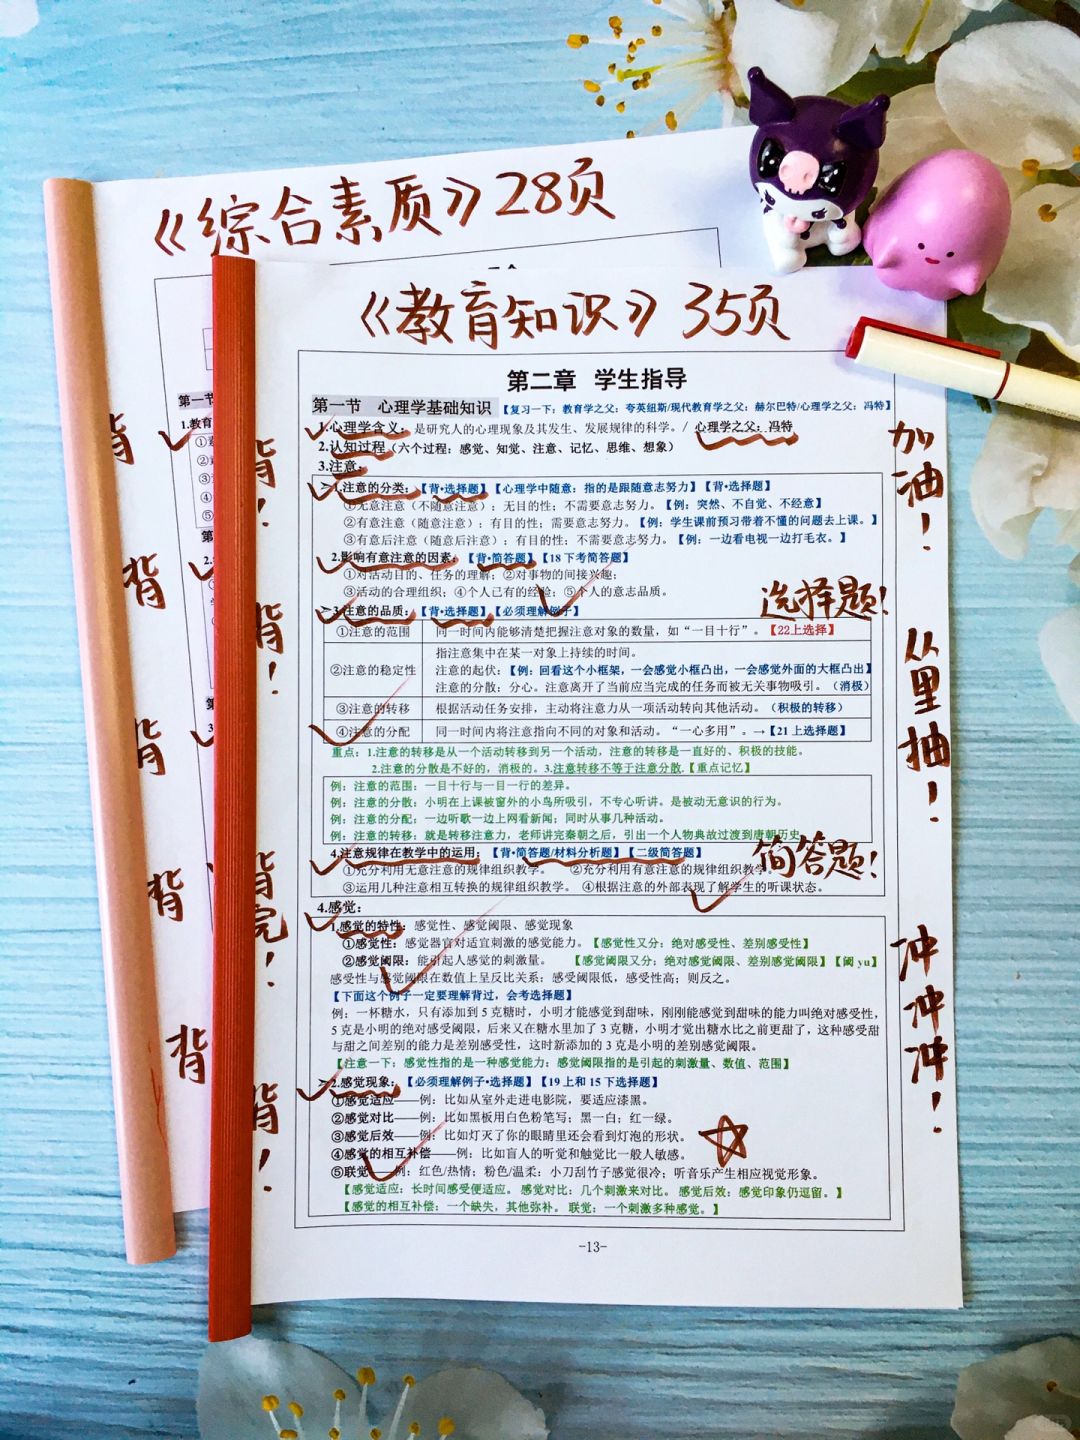 《综合素质》28页
《教育知识》35页
第二章 学生指导
第一节 心理学基础知识【复习一下：教育学之父：夸美纽斯/现代教育学之父：赫尔巴特/心理学之父：冯特】
1.心理学含义：是研究人的心理现象及其发生、发展规律的科学。/ 心理学之父：冯特
2.认知过程（六个过程：感觉、知觉、注意、记忆、思维、想象）
3.注意：
1.注意的分类：【背•选择题】【心理学中随意：指的是跟随意志努力】【背•选择题】
①无意注意（不随意注意）：无目的性；不需要意志努力。【例：突然、不自觉、不经意】
②有意注意（随意注意）：有目的性；需要意志努力。【例：学生课前预习带着不懂的问题去上课。】
③有意后注意（随意后注意）：有目的性；不需要意志努力。【例：一边看电视一边打毛衣。】
2.影响有意注意的因素：【背•简答题】【18下考简答题】
①对活动目的、任务的理解；②对事物的间接兴趣；
③活动的合理组织；④个人已有的经验；⑤个人的意志品质。
3.注意的品质：【背•选择题】【必须理解例子】
①注意的范围 同一时间内能够清楚把握注意对象的数量，如“一目十行”。【22上选择】
②注意的稳定性 指注意集中在某一对象上持续的时间。
注意的起伏：【例：回看这个小框架，一会感觉小框凸出，一会感觉外面的大框凸出】
注意的分散：分心。注意离开了当前应当完成的任务而被无关事物吸引。（消极）
③注意的转移 根据活动任务安排，主动将注意力从一项活动转向其他活动。（积极的转移）
④注意的分配 同一时间内将注意指向不同的对象和活动。“一心多用”。→【21上选择题】
重点：1.注意的转移是从一个活动转移到另一个活动，注意的转移是一直好的、积极的技能。
2.注意的分散是不好的，消极的。3.注意转移不等于注意分散.【重点记忆】
例：注意的范围：一目十行与一目一行的差异。
例：注意的分散：小明在上课被窗外的小鸟所吸引，不专心听讲。是被动无意识的行为。
例：注意的分配：一边听歌一边上网看新闻；同时从事几种活动。
例：注意的转移：就是转移注意力，老师讲完秦朝之后，引出一个人物典故过渡到唐朝历史
4.注意规律在教学中的运用：【背•简答题/材料分析题】【二级简答题】
①充分利用无意注意的规律组织教学。 ②充分利用有意注意的规律组织教学。
③运用几种注意相互转换的规律组织教学。 ④根据注意的外部表现了解学生的听课状态。
4.感觉：
1.感觉的特性：感觉性、感觉阈限、感觉现象
①感觉性：感觉器官对适宜刺激的感觉能力。【感觉性又分：绝对感受性、差别感受性】
②感觉阈限：能引起人感觉的刺激量。 【感觉阈限又分：绝对感觉阈限、差别感觉阈限】【阈 yu】
感受性与感觉阈限在数值上呈反比关系：感受阈限低，感受性高；则反之。
【下面这个例子一定要理解背过，会考选择题】
例：一杯糖水，只有添加到5克糖时，小明才能感觉到甜味，刚刚能感觉到甜味的能力叫绝对感受性，
5克是小明的绝对感受阈限，后来又在糖水里加了3克糖，小明才觉出糖水比之前更甜了，这种感受甜
与甜之间差别的能力是差别感受性，这时新添加的3克是小明的差别感觉阈限。
【注意一下：感觉性指的是一种感觉能力；感觉阈限指的是引起的刺激量、数值、范围】
2.感觉现象：【必须理解例子•选择题】【19上和15下选择题】
①感觉适应——例：比如从室外走进电影院，要适应漆黑。
②感觉对比——例：比如黑板用白色粉笔写；黑一白；红一绿。
③感觉后效——例：比如灯灭了你的眼睛里还会看到灯泡的形状。
④感觉的相互补偿——例：比如盲人的听觉和触觉比一般人敏感。
⑤联觉——例：红色/热情；粉色/温柔；小刀刮竹子感觉很冷；听音乐产生相应视觉形象。
【感觉适应：长时间感受便适应。感觉对比：几个刺激来对比。感觉后效：感觉印象仍逗留。】
【感觉的相互补偿：一个缺失，其他弥补。联觉：一个刺激多种感觉。】
-13-
选择题！
简答题！
加油！
从里抽！
冲冲冲！
背！
背！
背完！
背！
背
背
背
背
背
第一节
1.教育